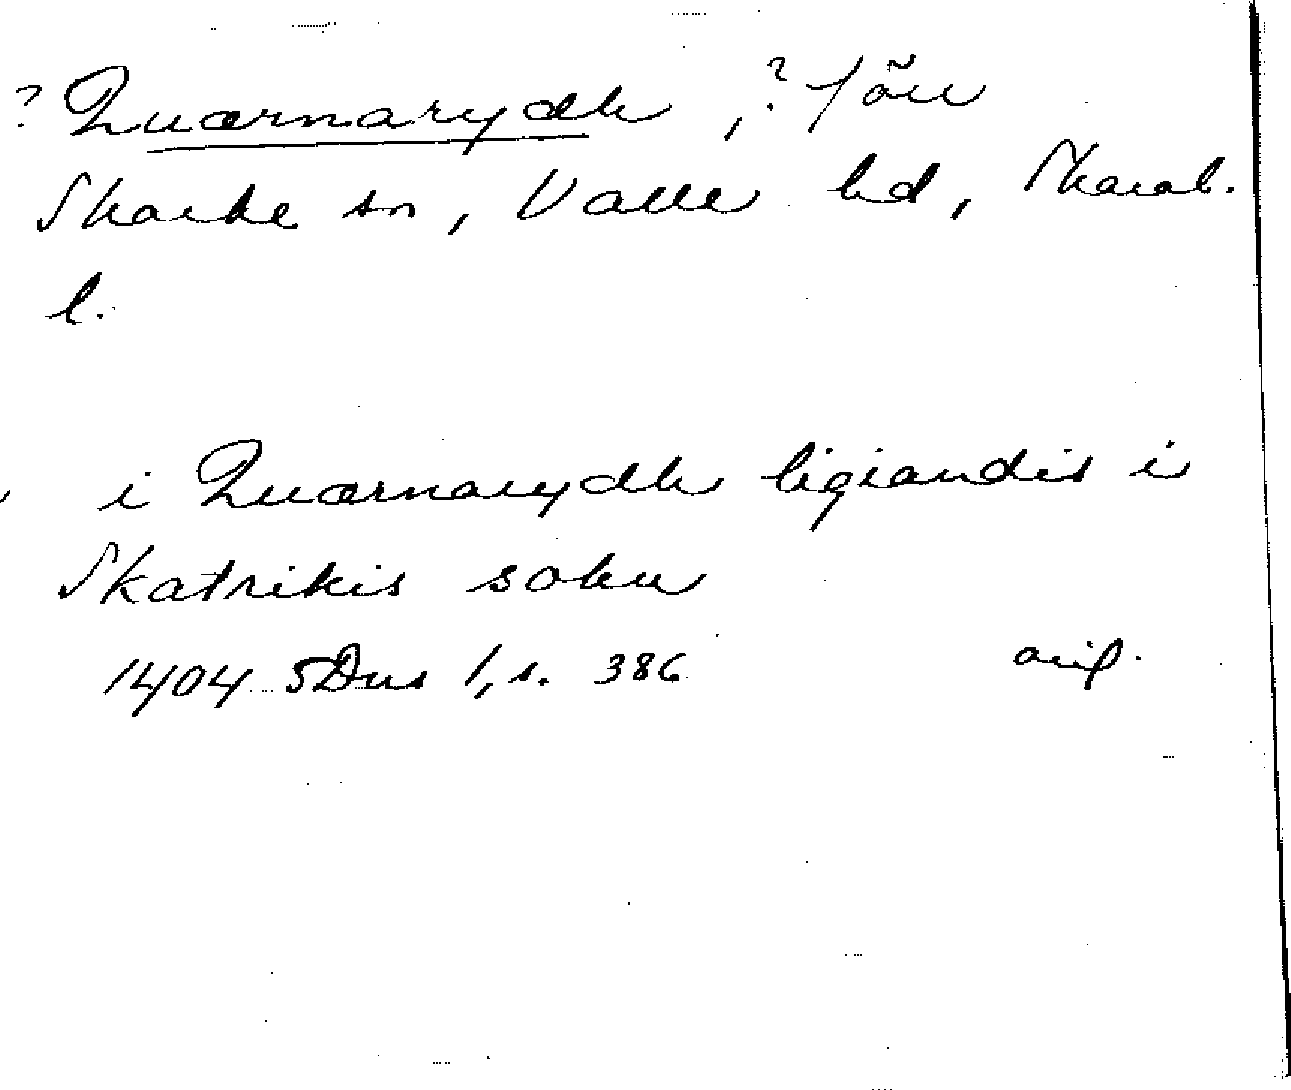 ? Quærnarydh, ? förr
Skarke sn, Valle hd, Skarab.
l.
i Quærnarydh ligiandis i
Skatrikis sokn
1404 SDns 1, s. 386 orig.